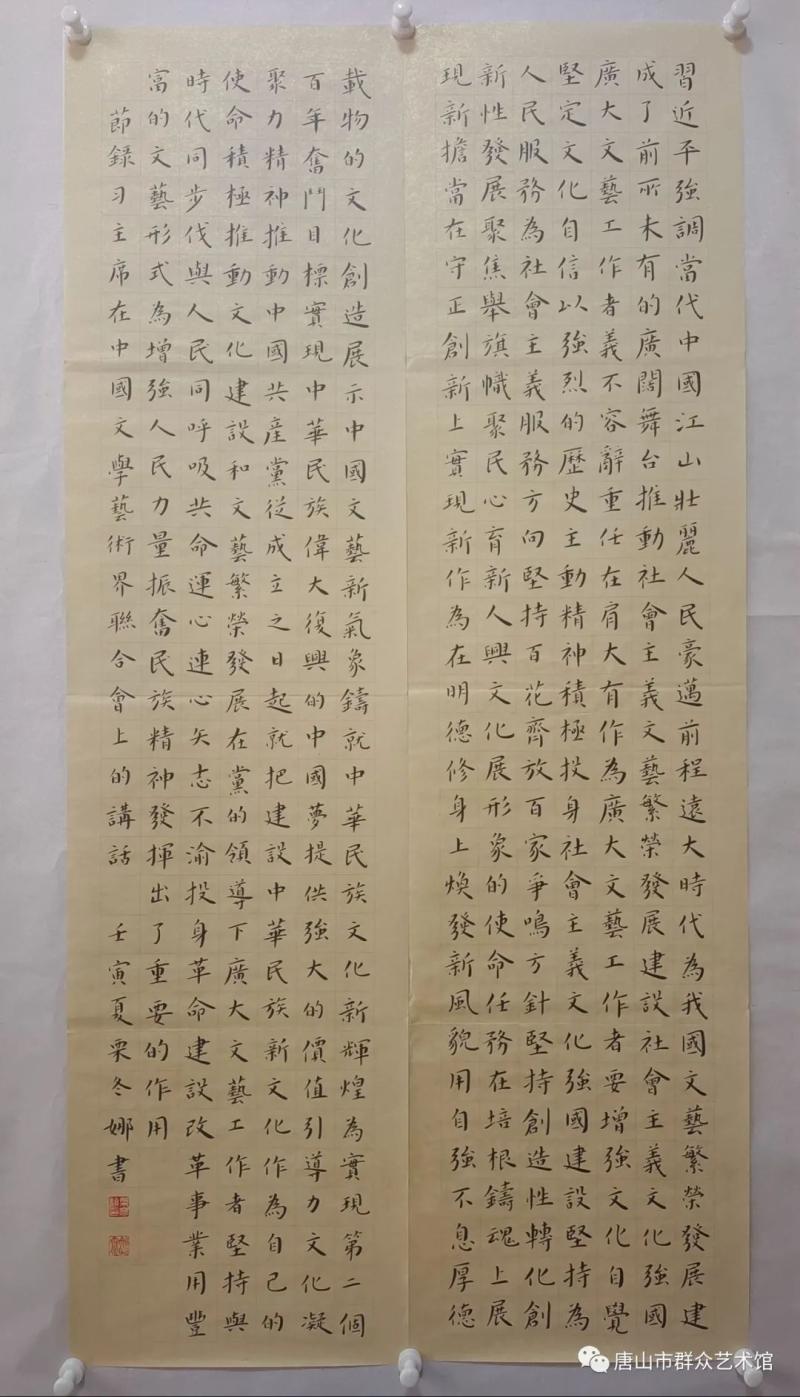 習近平強調當代中國江山壯麗人民豪邁前程遠大時代為我國文藝繁榮發展建
成了前所未有的廣闊舞台推動社會主義文藝繁榮發展建設社會主義文化強國
廣大文藝工作者義不容辭重任在肩大有作為廣大文藝工作者要增強文化自覺
堅定文化自信以強烈的歷史主動精神積極投身社會主義文化強國建設堅持為
人民服務為社會主義服務方向堅持百花齊放百家爭鳴方針堅持創造性轉化創
新性發展聚焦舉旗幟聚民心育新人興文化展形象的使命任務在培根鑄魂上展
現新擔當在守正創新上實現新作為在明德修身上煥發新風貌用自強不息厚德
載物的文化創造展示中國文藝新氣象鑄就中華民族文化新輝煌為實現第二個
百年奮鬥目標實現中華民族偉大復興的中國夢提供強大的價值引導力文化凝
聚力精神推動中國共產黨從成立之日起就把建設中華民族新文化作為自己的
使命積極推動文化建設和文藝繁榮發展在黨的領導下廣大文藝工作者堅持與
時代同步伐與人民同呼吸共命運心連心矢志不渝投身革命建設改革事業用豐
富的文藝形式為增強人民力量振奮民族精神發揮出了重要的作用
節録习主席在中國文學藝術界聯合會上的講話 壬寅夏栗冬娜書
唐山市群众艺术馆